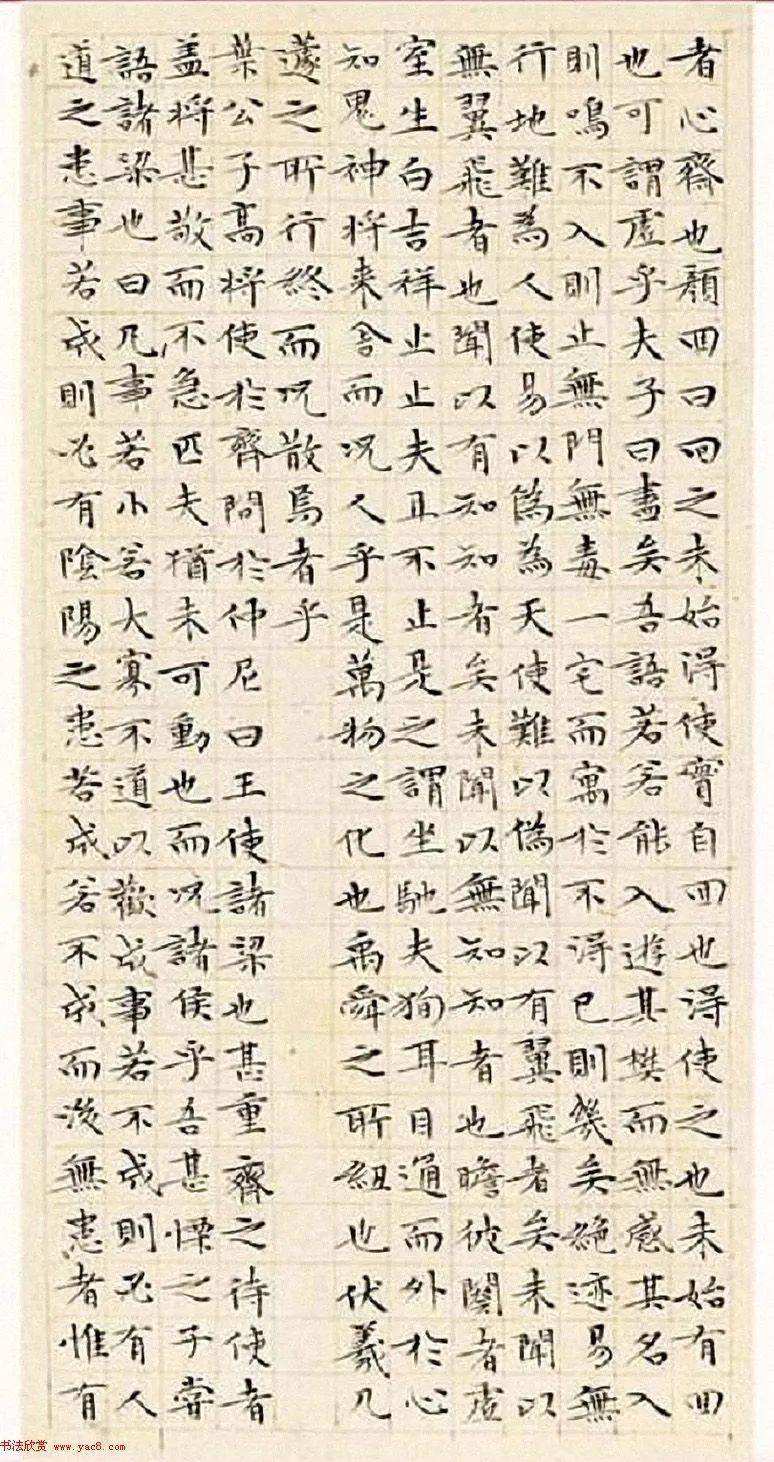 者心齋也顏回曰回之未始得使實自回也得使之也未始有回
也可謂虛乎夫子曰盡矣吾語若若能入遊其樊而無感其名入
則鳴不入則止無門無毒一宅而寓於不得已則幾矣絕迹易無
行地難為人使易以偽為天使難以偽聞以有翼飛者矣未聞以
無翼飛者也聞以有知知者矣未聞以無知知者也瞻彼闋者虛
室生白吉祥止止夫且不止是之謂坐馳夫徇耳目通而外於心
知鬼神將来舍而況人乎是萬物之化也禹舜之所紐也伏羲几
蘧之所行終而況散焉者乎
葉公子高將使於齊問於仲尼曰王使諸梁也甚重齊之待使者
盖將甚敬而不急匹夫猶未可動也而況諸侯乎吾甚慄之子嘗
語諸梁也曰凡事若小若大寡不道以歡成事若不成則必有人
道之患事若成則必有陰陽之患若成若不成而後無患者惟有
书法欣赏 www.yac8.com